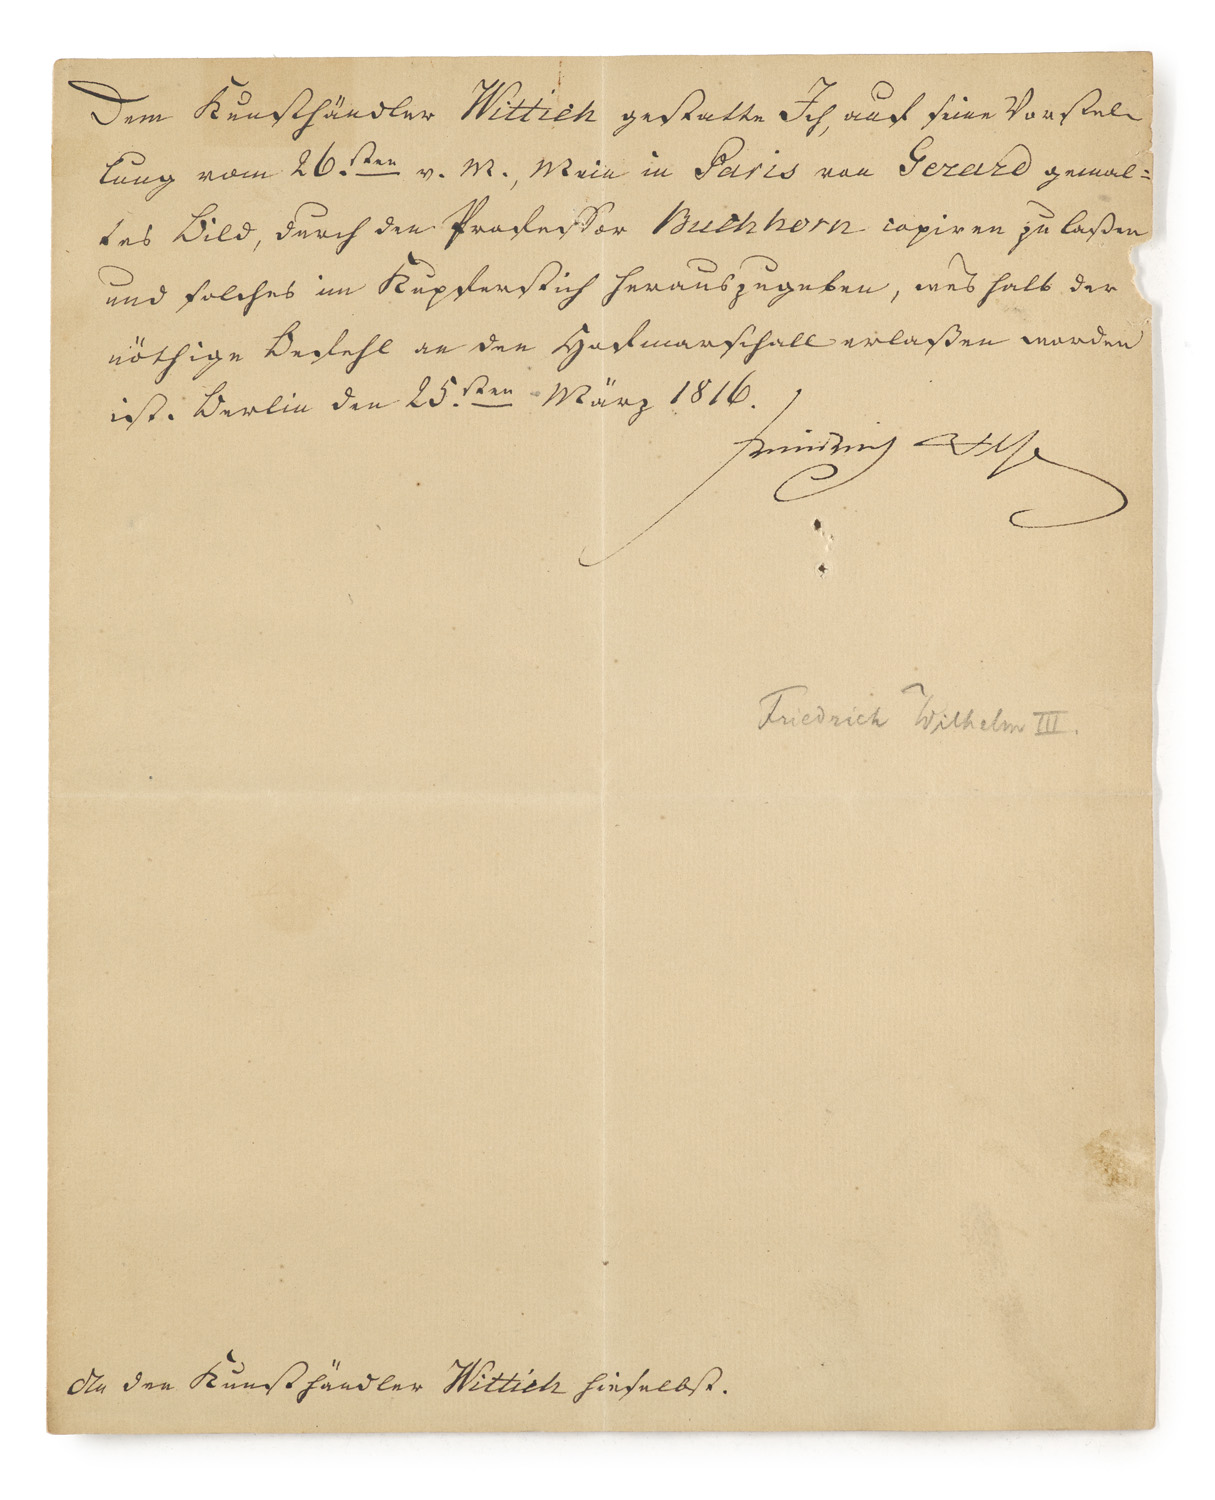 Dem Kunsthändler Wittich gestatte Ich, auf seine Vorstel-
lung vom 26.sten v. M., Mein in Paris von Gerard gemal=
tes Bild, durch den Professor Buchhorn copiren zu laßen
und solches im Kupferstich herauszugeben, weshalb der
nöthige Befehl an den Hofmarschall erlaßen worden
ist. Berlin den 25.sten März 1816.
Friedrich Wilhelm
Friedrich Wilhelm III.
An den Kunsthändler Wittich hieselbst.